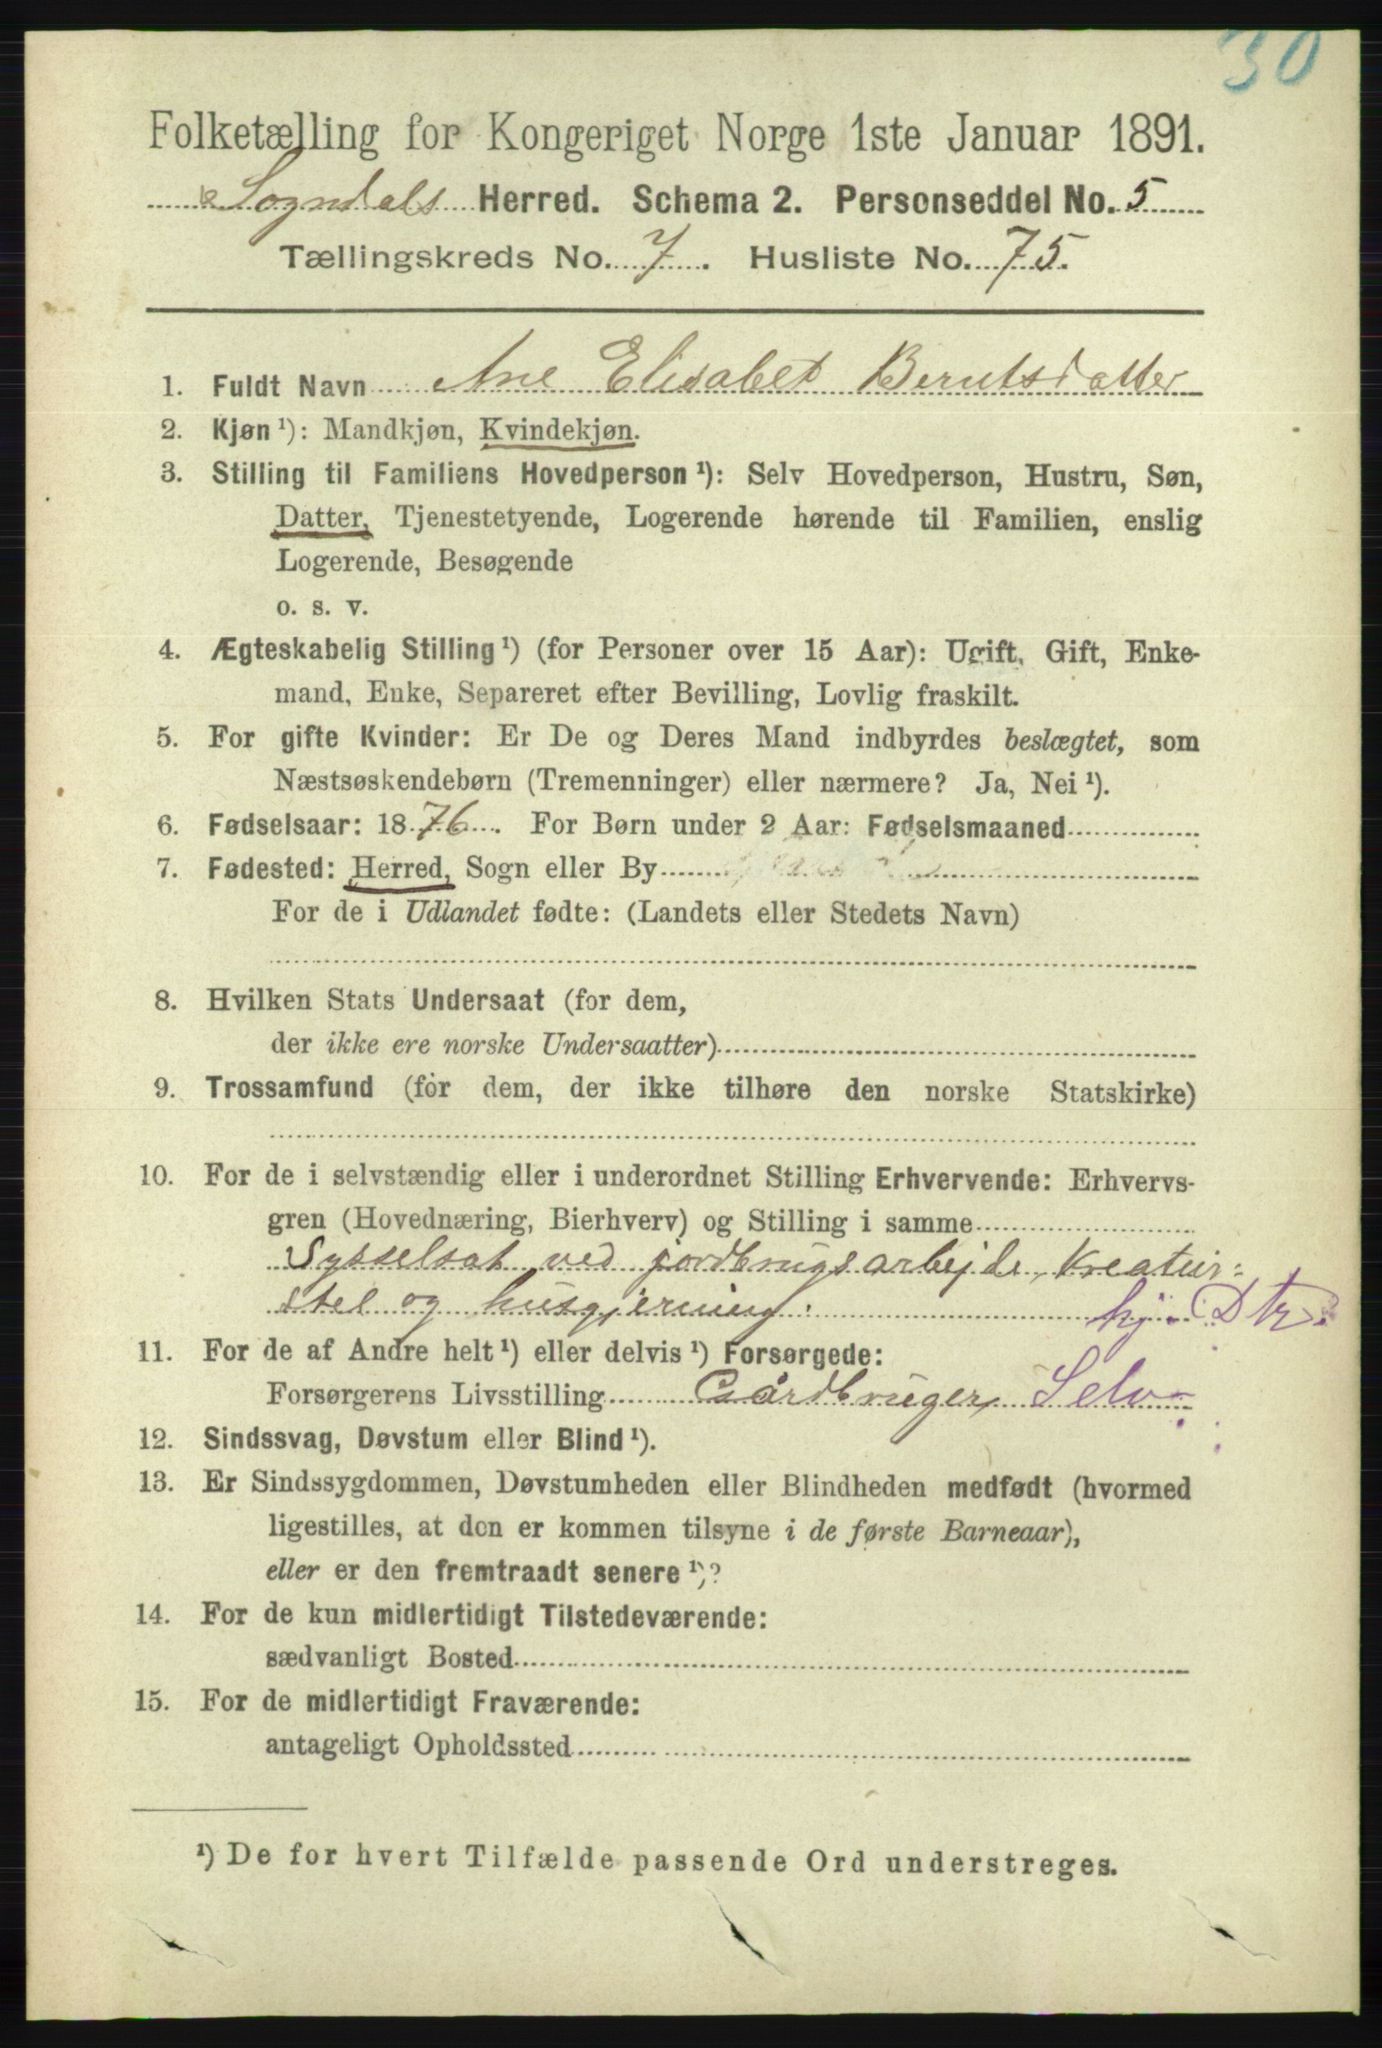 30
Folketælling for Kongeriget Norge 1ste Januar 1891.
Sogndals Herred. Schema 2. Personseddel No. 5
Tællingskreds No. 7. Husliste No. 75.
1. Fuldt Navn Ane Elisabet Berntsdatter
2. Kjøn ¹): Mandkjøn, Kvindekjøn.
3. Stilling til Familiens Hovedperson ¹): Selv Hovedperson, Hustru, Søn,
Datter, Tjenestetyende, Logerende hørende til Familien, enslig
Logerende, Besøgende
o. s. v.
4. Ægteskabelig Stilling ¹) (for Personer over 15 Aar): Ugift, Gift, Enke-
mand, Enke, Separeret efter Bevilling, Lovlig fraskilt.
5. For gifte Kvinder: Er De og Deres Mand indbyrdes beslægtet, som
Næstsøskendebørn (Tremenninger) eller nærmere? Ja, Nei ¹).
6. Fødselsaar: 1876. For Børn under 2 Aar: Fødselsmaaned
7. Fødested: Herred, Sogn eller By
For de i Udlandet fødte: (Landets eller Stedets Navn)
8. Hvilken Stats Undersaat (for dem,
der ikke ere norske Undersaatter)
9. Trossamfund (for dem, der ikke tilhøre den norske Statskirke)
10. For de i selvstændig eller i underordnet Stilling Erhvervende: Erhvervs-
gren (Hovednæring, Bierhverv) og Stilling i samme
Sysselsat ved jordbrugsarbejde, kreatur-
stel og husgjerning. hj. Dtr.
11. For de af Andre helt ¹) eller delvis ¹) Forsørgede:
Forsørgerens Livsstilling Gårdbruger, Selv-
12. Sindssvag, Døvstum eller Blind ¹).
13. Er Sindssygdommen, Døvstumheden eller Blindheden medfødt (hvormed
ligestilles, at den er kommen tilsyne i de første Barneaar),
eller er den fremtraadt senere ¹)?
14. For de kun midlertidigt Tilstedeværende:
sædvanligt Bosted
15. For de midlertidigt Fraværende:
antageligt Opholdssted
¹) De for hvert Tilfælde passende Ord understreges.